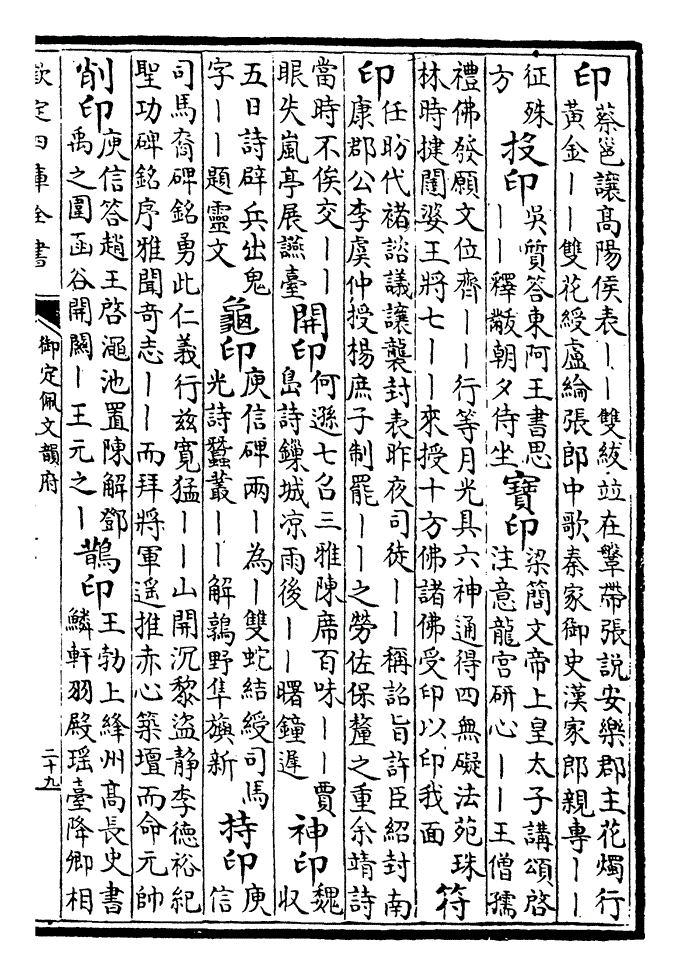 印
蔡邕讓髙陽侯表丨丨雙紱竝在鞶帶張説安樂郡主花燭行
黃金丨丨雙花綬盧綸張郎中歌秦家御史漢家郎親專丨丨
征殊
方
投印
吳質答東阿王書思
丨丨釋黻朝夕侍坐
寶印
梁簡文帝上皇太子講頌啓
注意龍宮研心丨丨王僧孺
禮佛發願文位齊丨丨行等月光具六神通得四無礙法苑珠
林時揵闥婆王將七丨丨來授十方佛諸佛受印以印我面
符
印
任昉代褚諮議讓襲封表昨夜司徒丨丨稱詔旨許臣紹封南
康郡公李虞仲授楊庶子制罷丨丨之勞佐保釐之重余靖詩
當時不俟交丨丨
眼失嵐亭展讌臺
開印
何遜七召三雅陳席百味丨丨賈
島詩鏁城凉雨後丨丨曙鐘遲
神印
魏
収
五日詩辟兵出鬼
字丨丨題靈文
龜印
庾信碑兩丨為丨雙蛇結綬司馬
光詩蠶叢丨丨解鶉野隼旟新
持印
庾
信
司馬裔碑銘勇此仁義行兹寛猛丨丨山開沉黎盗静李德裕紀
聖功碑銘序雅聞竒志丨丨而拜將軍遥推赤心築壇而命元帥
削印
庾信答趙王啓澠池置陳解鄧
禹之圍函谷開關丨王元之丨
鵲印
王勃上絳州髙長史書
鱗軒羽殿瑶臺降卿相
欽定四庫全書
御定佩文韻府
二十九